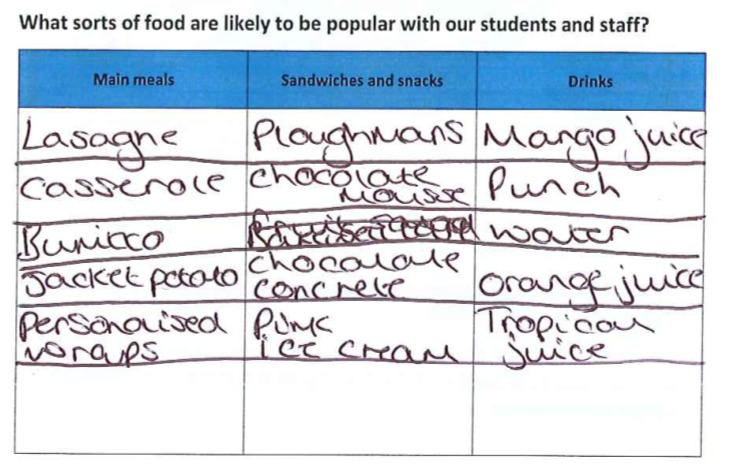 What sorts of food are likely to be popular with our students and staff?
Main meals Sandwiches and snacks Drinks
Lasagne Ploughmans Mango juice
Casserole chocolate mousse Punch
Buritto water
Jacket potato chocolate concrete orange juice
Personalised wraps Pink ice cream Tropical juice